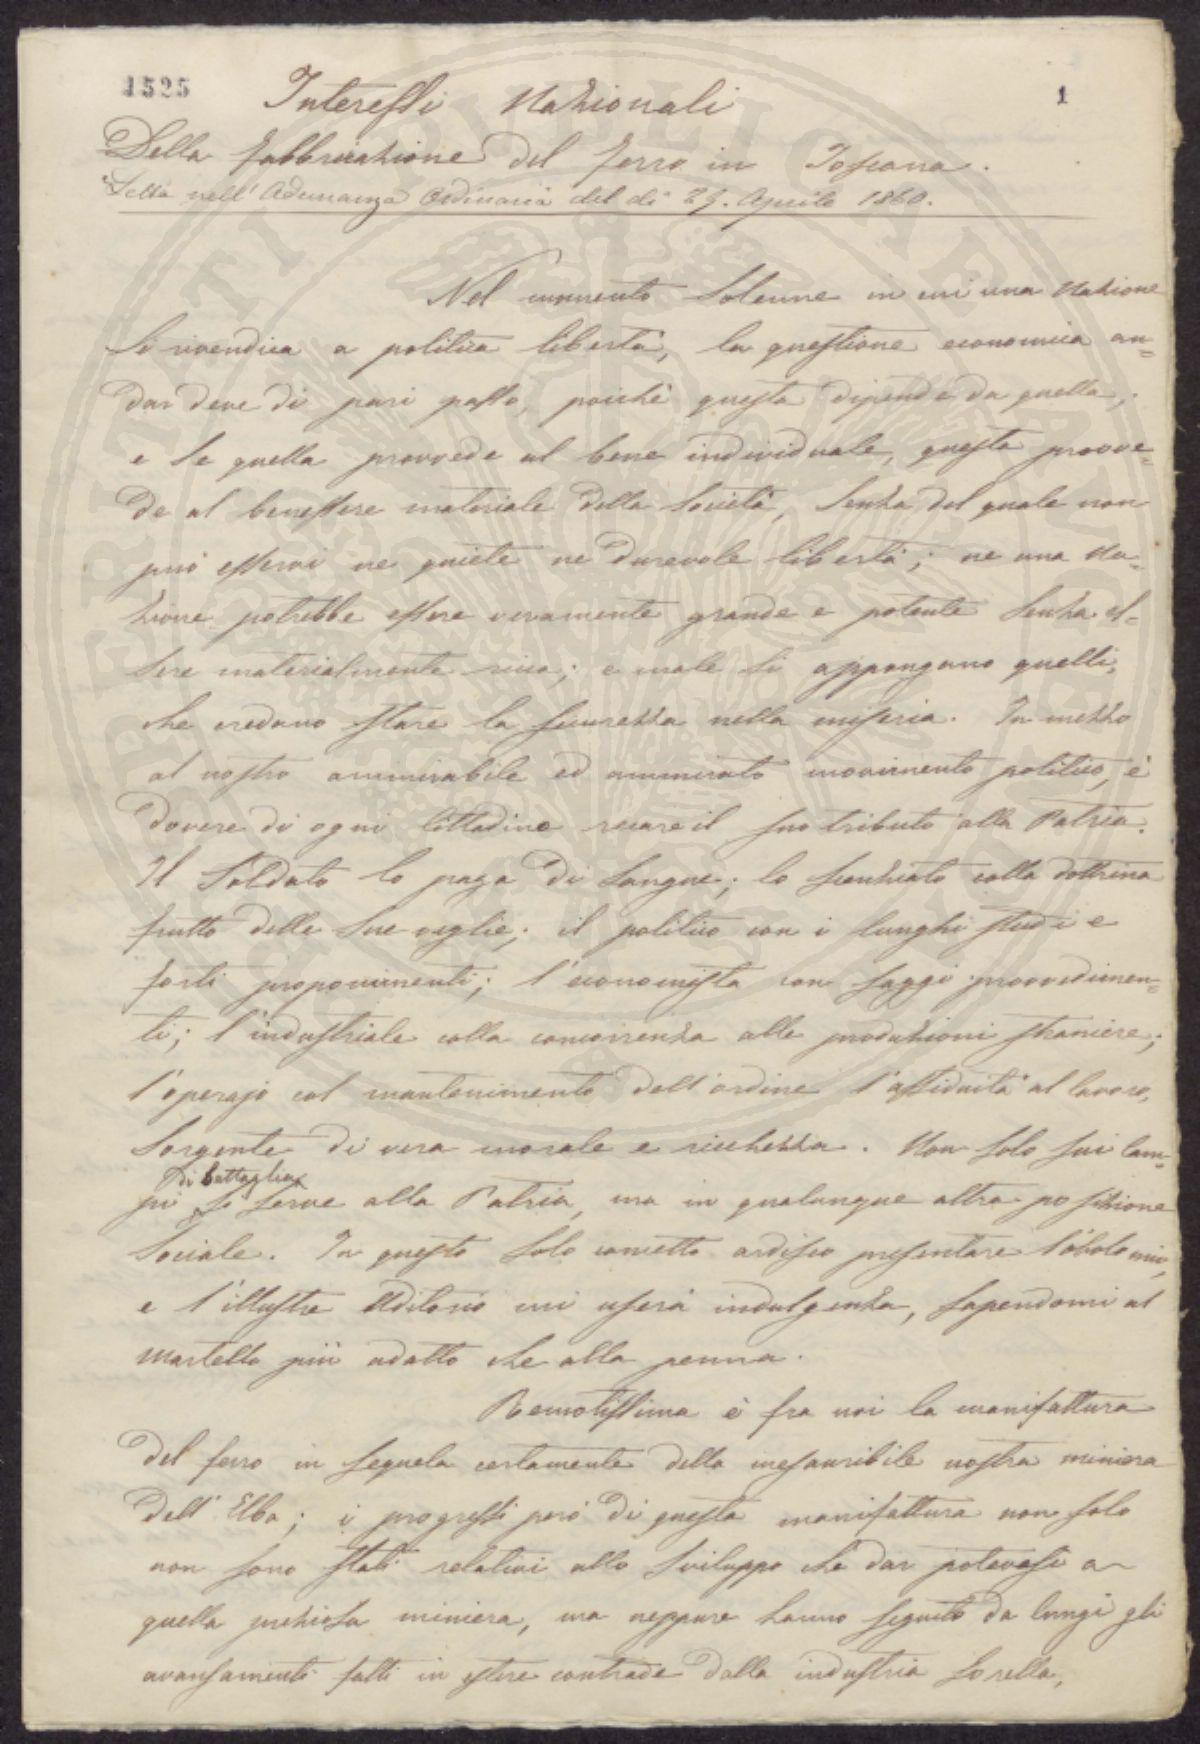 1525
1
Interessi Nazionali
Della fabbricazione del ferro in Toscana.
Letta nell'Adunanza Ordinaria del di 29. Aprile 1860.
Nel momento solenne in cui una Nazione
si rivendica a politica libertà, la questione economica an=
dar deve di pari passo, poichè questa dipende da quella;
e se quella provvede al bene individuale, questa provve=
de al benessere materiale della Società, senza del quale non
può esservi ne quiete ne durevole libertà; ne una Na=
zione potrebbe essere veramente grande e potente senza es=
sere materialmente ricca; e male si appongano quelli,
che credano stare la sicurezza nella miseria. In mezzo
al nostro ammirabile ed ammirato movimento politico, è
dovere di ogni Cittadino recare il suo tributo alla Patria.
Il Soldato lo paga di sangue; lo scenziato colla dottrina
frutto delle sue veglie; il politico con i lunghi studi e
forti proponimenti; l'economista con saggi provvedimen=
ti; l'industriale colla concorrenza alle produzioni straniere;
l'operajo col mantenimento dell'ordine l'assiduità al lavoro,
sorgente di vera morale e ricchezza. Non solo sui Cam=
di battaglia
pi si serve alla Patria, ma in qualunque altra posizione
Sociale. In questo solo concetto ardisco presentare l'obolo mio,
e l'illustre Uditorio mi userà indulgenza, sapendomi al
martello più adatto che alla penna.
Remotissima è fra noi la manifattura
del ferro in seguela certamente della inesauribile nostra miniera
dell'Elba; i progressi però di questa manifattura non solo
non sono stati relativi allo sviluppo che dar potevasi a
quella preziosa miniera, ma neppure hanno seguito da lungi gli
avansamenti fatti in estere contrade dalla industria sorella,